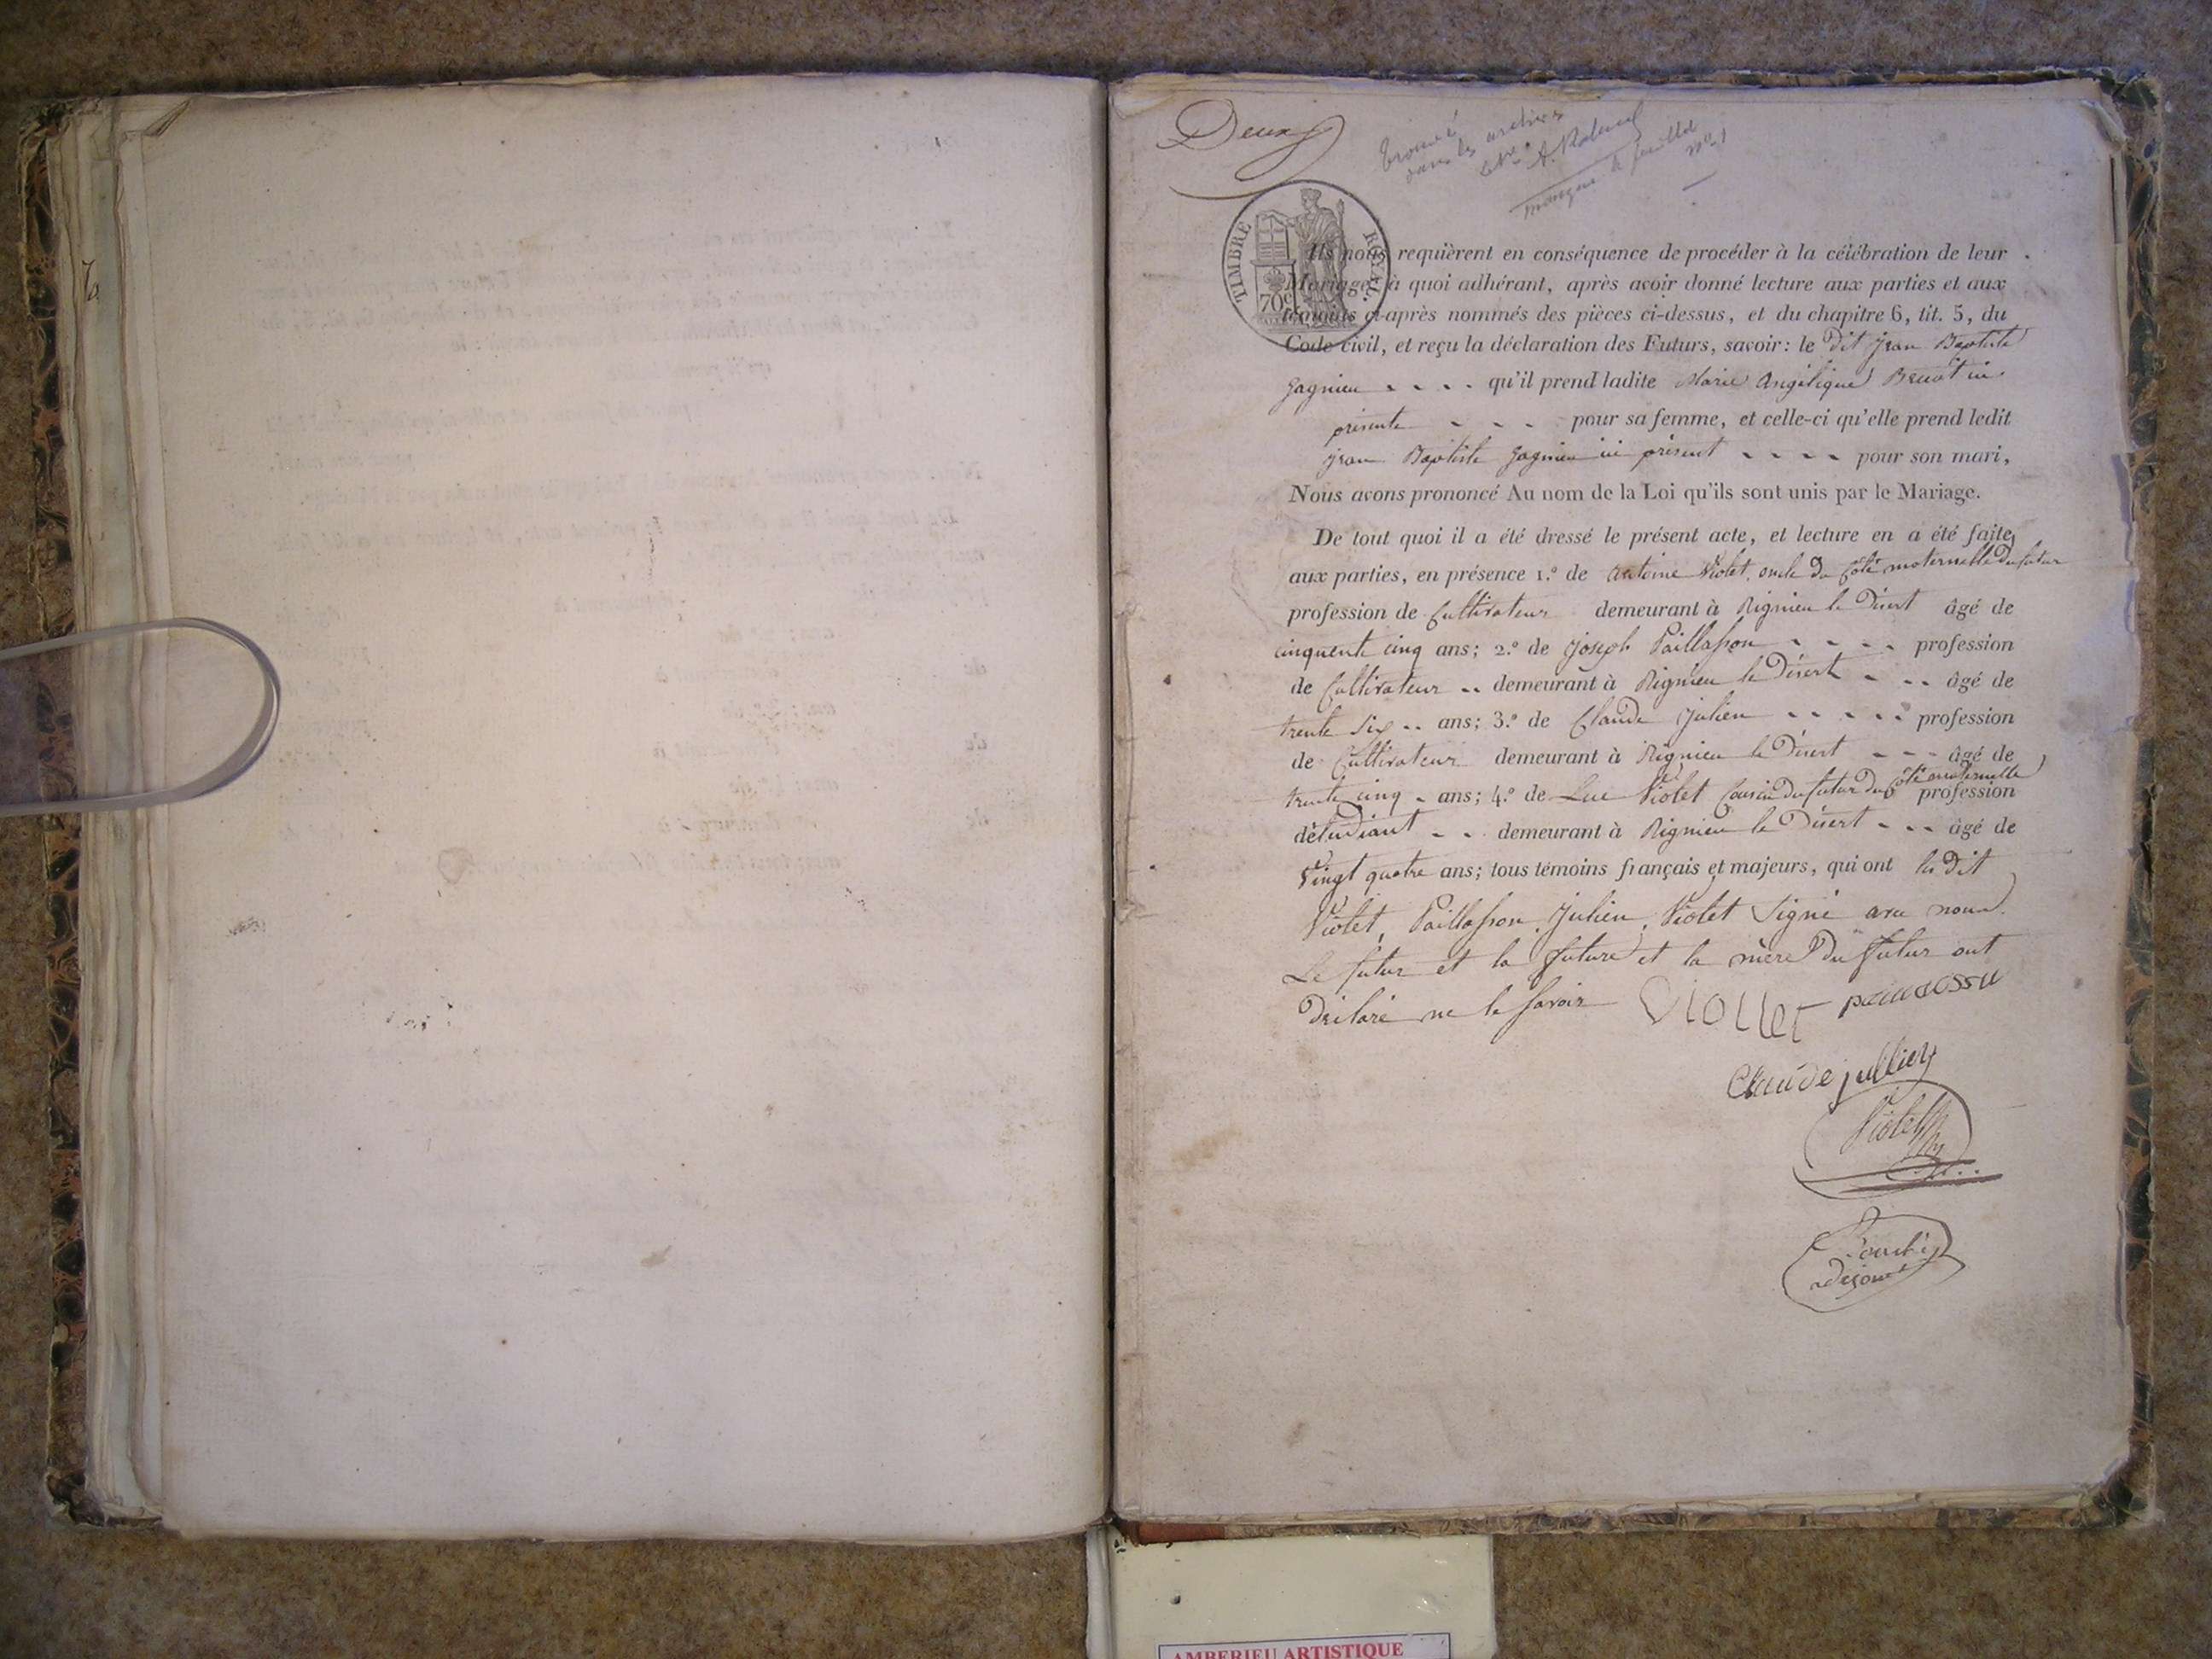 Deux
Trouvé
dans les archives
manque la feuille
n° 1
TIMBRE ROYAL
70c
Ils nous requièrent en conséquence de procéder à la célébration de leur
Mariage, à quoi adhérant, après avoir donné lecture aux parties et aux
témoins ci-après nommés des pièces ci-dessus, et du chapitre 6, tit. 5, du
Code civil, et reçu la déclaration des Futurs, savoir: le dit jean Baptiste
gagnieu qu'il prend ladite Marie Angélique Benoit ici
présente pour sa femme, et celle-ci qu'elle prend ledit
jean Baptiste gagnieu ici présent pour son mari,
Nous avons prononcé Au nom de la Loi qu'ils sont unis par le Mariage.
De tout quoi il a été dressé le présent acte, et lecture en a été faite
aux parties, en présence 1.º de Antoine Violet, oncle du Côté maternelle du futur
profession de Cultivateur demeurant à Rignieu le Désert âgé de
cinquente cinq ans; 2.º de joseph Paillasson profession
de Cultivateur demeurant à Rignieu le Désert âgé de
trente six ans; 3.º de Claude julien profession
de Cultivateur demeurant à Rignieu le Désert âgé de
trente cinq ans; 4.º de Luc Violet Cousin du futur du Côté maternelle profession
d'étudiant demeurant à Rignieu le Désert âgé de
Vingt quatre ans; tous témoins français et majeurs, qui ont les dit
Violet, Paillasson, Julien, Violet signé avec nous.
Le futur et la future et la mère du futur ont
déclaré ne le savoir Viollet
Claude jullien
Violet
adjoint
AMBERIEU ARTISTIQUE